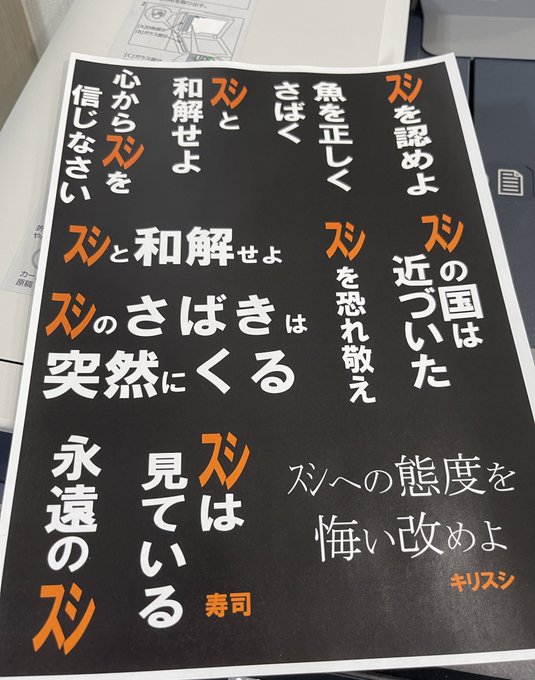 スシを認めよ
魚を正しく
さばく
スシと
和解せよ
心からスシを
信じなさい
スシの国は
近づいた
スシを恐れ敬え
スシと和解せよ
スシのさばきは
突然にくる
スシへの態度を
悔い改めよ
キリスシ
スシは
見ている
寿司
永遠のスシ